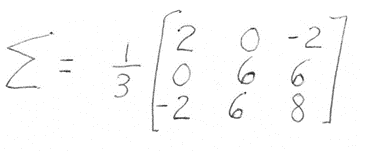 Σ = 1/3 [ 2 0 -2
0 6 6
-2 6 8 ]